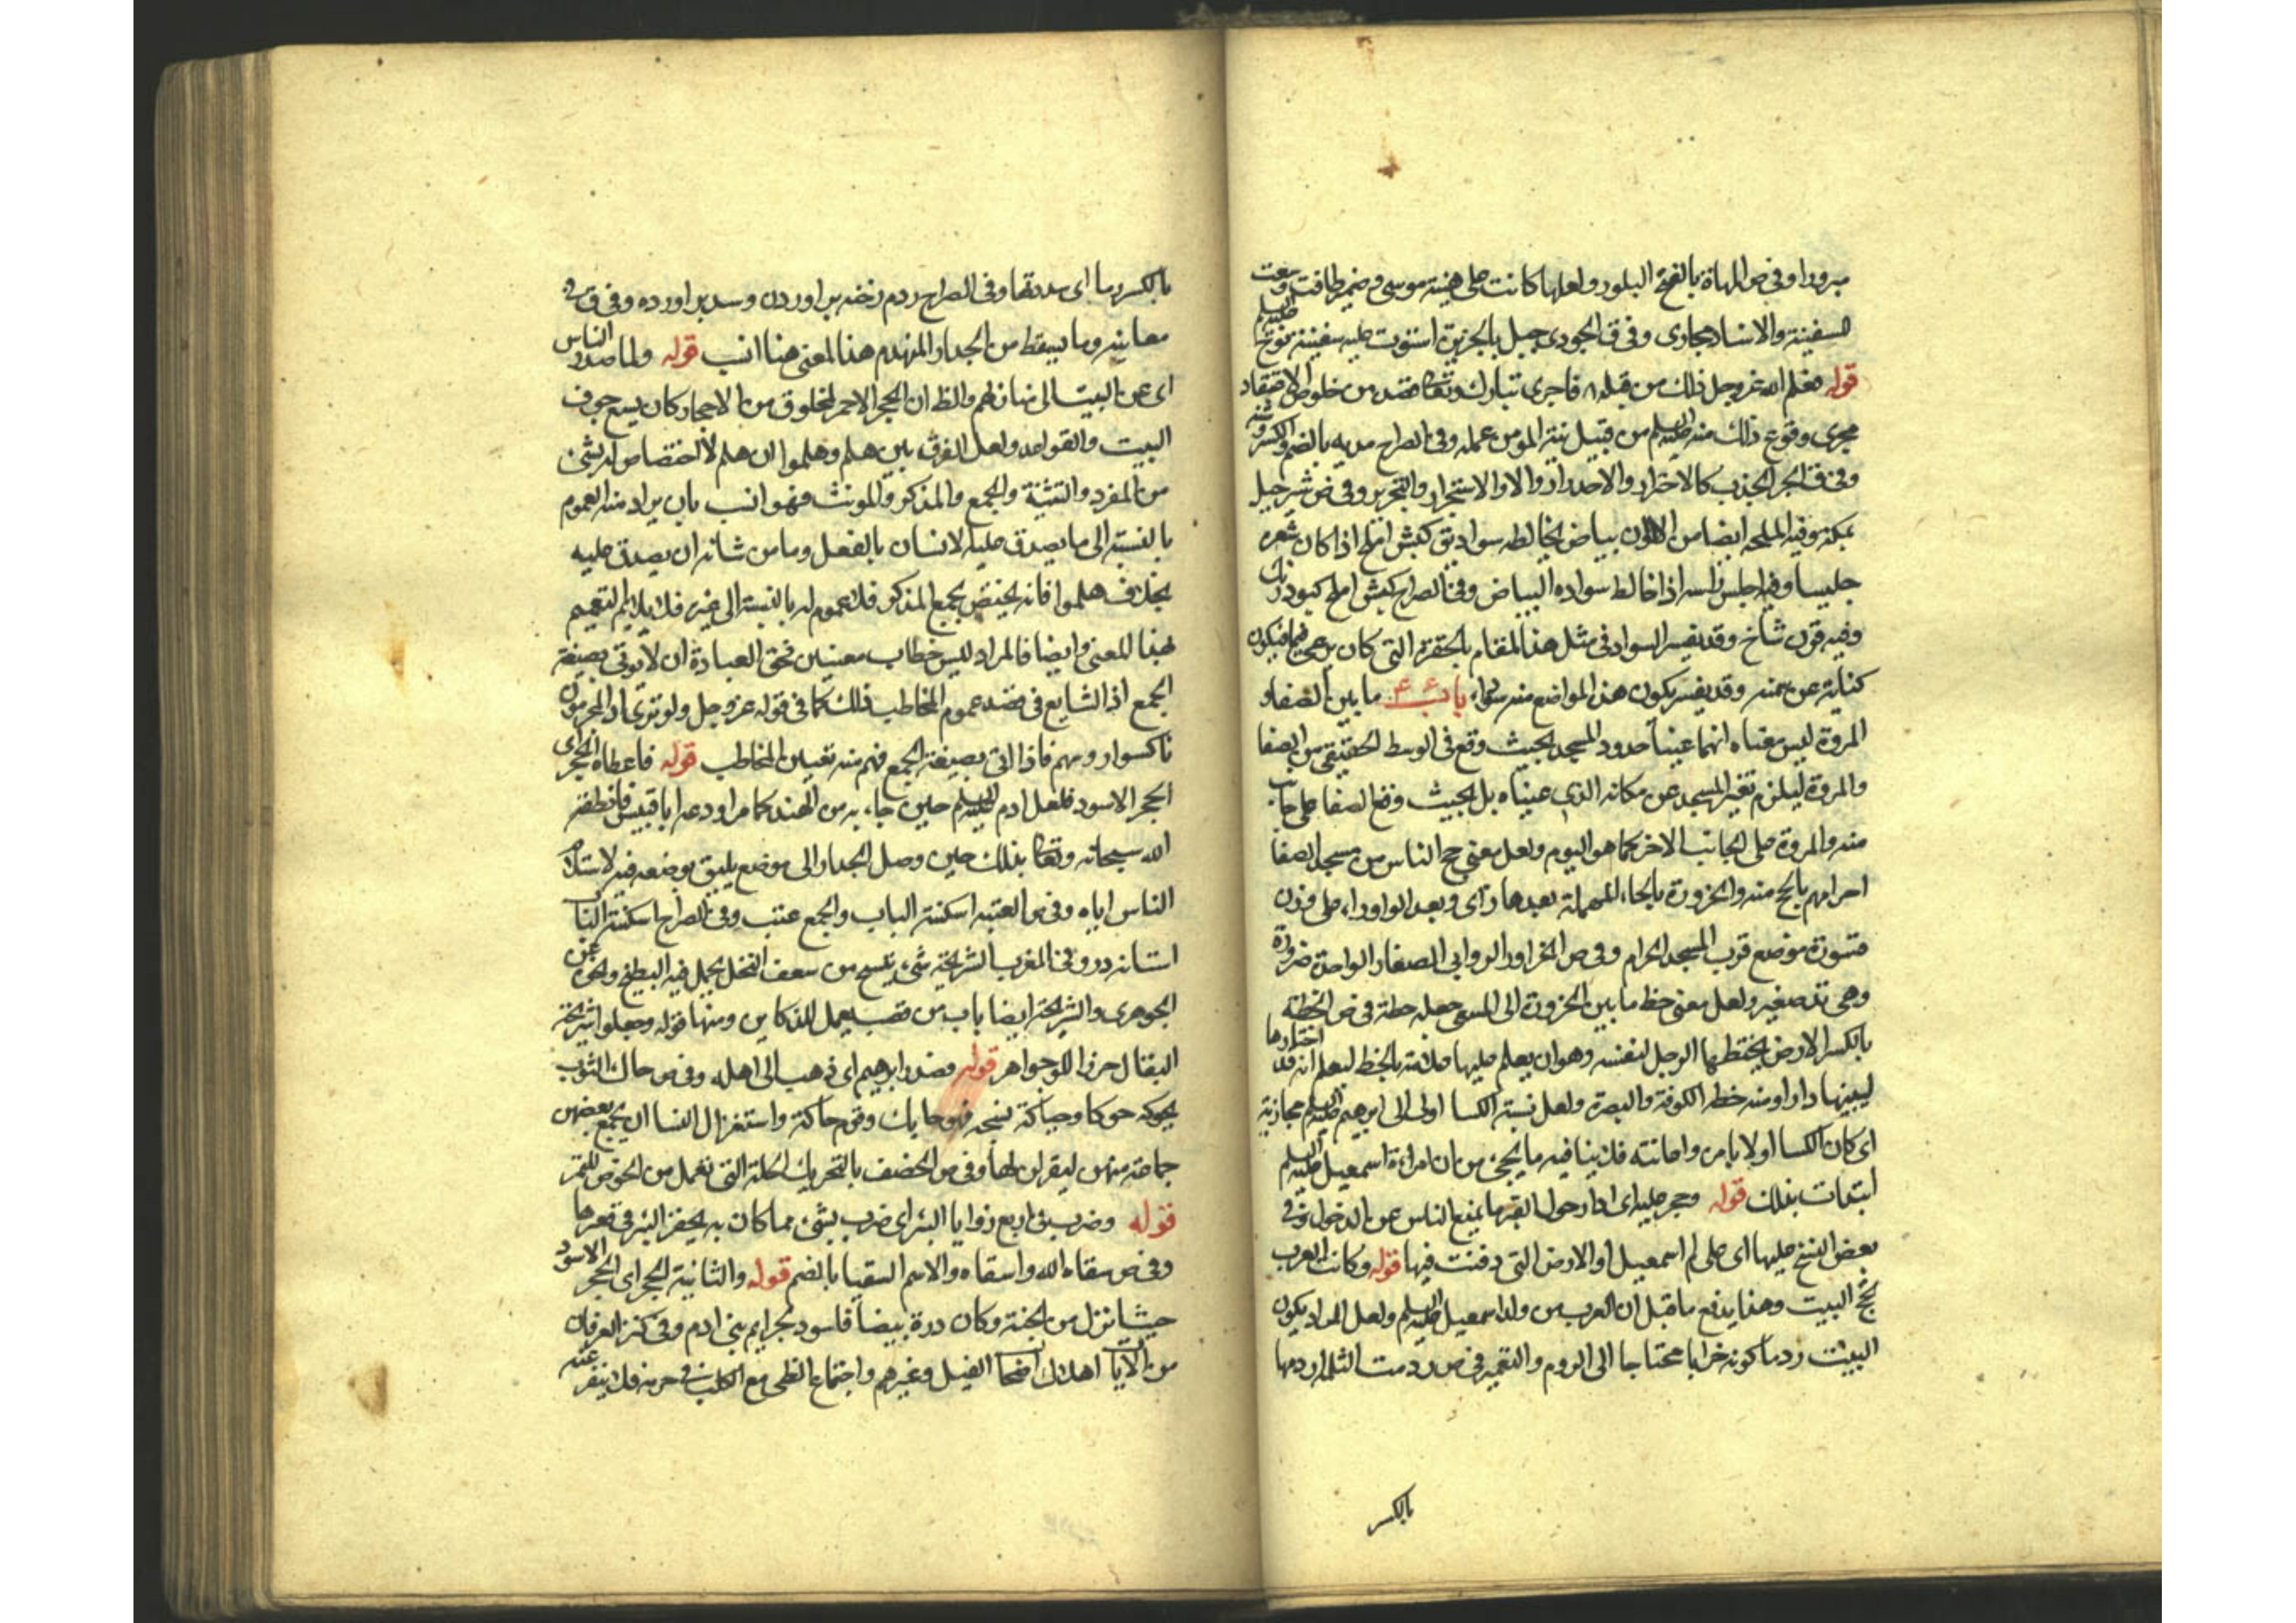 مبرودا وفي ص المهاة بالفتح البلور ولعلها كانت على هيئة موسى وضمير طافت وسعت
للسفينة والاسناد مجازى وفي ق الجودى جبل بالجزيرة استوت عليه سفينة نوح عليه السلم
قوله فعلم الله عز وجل ذلك من قبله فاجرى تبارك وتعا ما قصده من خلوص الاعتقاد
مجرى وقوع ذلك منه عليه السلم من قبيل نية المومن عمله وفي الصراح مديه بالضم والكسر
وفي ق الجر الجذب كالاجترار والاجدرار والاستجرار والتجرير وفي ص ثبير جبل
بمكة وفيه الملحة ايضا من الالوان بياض يخالطه سواد يق كبش املح اذا كان شعره
خليسا وفيه اخلس راسه اذا خالط سواده البياض وفي الصراح كبش املح كبود رنك
وفيه قرن شاخ وقد يفسر السواد في مثل هذا المقام بالحفرة التى كان يرعى فيها فيكون
كناية عن سمنه وقد يفسر بكون هذه المواضع منه سواد باب ما بين الصفا و
المروة ليس معناه انهما عينا حدود المسجد بحيث وقع في الوسط الحقيقي من الصفا
والمروة ليلزم تغير المسجد عن مكانه الذى عيناه بل بحيث وقع الصفا على جانب
منه والمروة على الجانب الاخر كما هو اليوم ولعل معنى حج الناس من مسجد الصفا
احرامهم بالحج منه والحزورة بالحاء المهملة بعدها زاى وبعد الواو راء على وزن
قسورة موضع قرب المسجد الحرام وفي ص الحزاور الروابى الصغار الواحدة حزورة
وهى تل صغير ولعل معنى خط ما بين الحزورة الى المسعى جعله خطة في ص الخطة
بالكسر الارض يختطها الرجل لنفسه وهو ان يعلم عليها علامة بالخط ليعلم انه قد اختارها
ليبنيها دارا ومنه خطط الكوفة والبصرة ولعل نسبة الكسا اولا الى ابرهيم عليه السلم مجازية
اى كان الكسا اولا بامره واعانته فلا ينافيه ما يجئ من ان امراة اسمعيل عليه السلم
ابتدات بذلك قوله وحجر عليه اى ادار حول القبر ما يمنع الناس عن الدخول وفي
بعض النسخ عليها اى على ام اسمعيل او الارض التى دفنت فيها قوله وكانت العرب
تحج البيت وهذا يدفع ما قيل ان العرب من ولد اسمعيل عليه السلم ولعل المراد بكون
البيت ردما كونه خرابا محتاجا الى الروم والتعمير في ص ردمت الثلمة اردمها
بالكسر
بالكسر ردما اى سددتها وفي الصراح ردم رخنه براوردن وسد براورده وفي ق في
معانيه وما يسقط من الجدار المنهدم هذا المعنى هنا انسب قوله ولما صدر الناس
اى عن البيت الى منازلهم والظ ان الحجر الاحمر المخلوق من الاحجار كان يسع جوف
البيت والقواعد ولعل الفرق بين هلم وهلموا ان هلم لا اختصاص له بشئ
من المفرد والتثنية والجمع والمذكر والمونث فهو انسب بان يراد منه العموم
بالنسبة الى ما يصدق عليه الانسان بالفعل وما من شانه ان يصدق عليه
بخلاف هلموا فانه يختص بجمع المذكر فلا عموم له بالنسبة الى غيره فلا يلايم التعميم
بهذا المعنى وايضا فالمراد ليس خطاب معينين فحق العبارة ان لا يوتى بصيغة
الجمع اذ الشايع في قصد عموم المخاطب ذلك كما في قوله عز وجل ولو ترى اذ المجرمون
ناكسوا روسهم فاذا اتى بصيغة الجمع فهم منه تعيين المخاطب قوله فاعطاه الحجر اى
الحجر الاسود فلعل ادم عليه السلم حين جاء به من الهند كما مر اودعه ابا قبيس فانطقه
الله سبحانه وتعا بذلك حين وصل الجدار الى موضع يليق بوضعه فيه لاستلام
الناس اياه وفي ص العتبة اسكفة الباب والجمع عتب وفي الصراح اسكفة الباب
استانه در وفي المغرب الشريجة شئ ينسج من سعف النخل يحمل فيه البطيخ ونحوه عن
الجوهرى والشريجة ايضا باب من قصب يعمل للدكاكين ومنها قوله وجعلوا شريجة
البقال حرزا للجواهر قوله فصدر ابرهيم اى ذهب الى اهله وفي ص حاك الثوب
يحوكه حوكا وحياكة نسجه فهو حايك وقوم حاكة واستغزال النسا ان يجمع بعضهن
جماعة منهن ليغزلن لها وفي ص الخصف بالتحريك الجلة التى تعمل من الخوص للتمر
قوله وضرب في اربع زوايا البئر اى ضرب بشئ مما كان به يحفر البئر في قعرها
وفي ص سقاه الله واسقاه والاسم السقيا بالضم قوله والثانية الحجر اى الحجر الاسود
حيث نزل من الجنة وكان درة بيضا فاسود بجرايم بنى ادم وفي كنز العرفان
من الآيات اهلاك اصحا الفيل وغيرهم واجتماع الظبى مع الكلب في حرمه فلا ينفر عنه